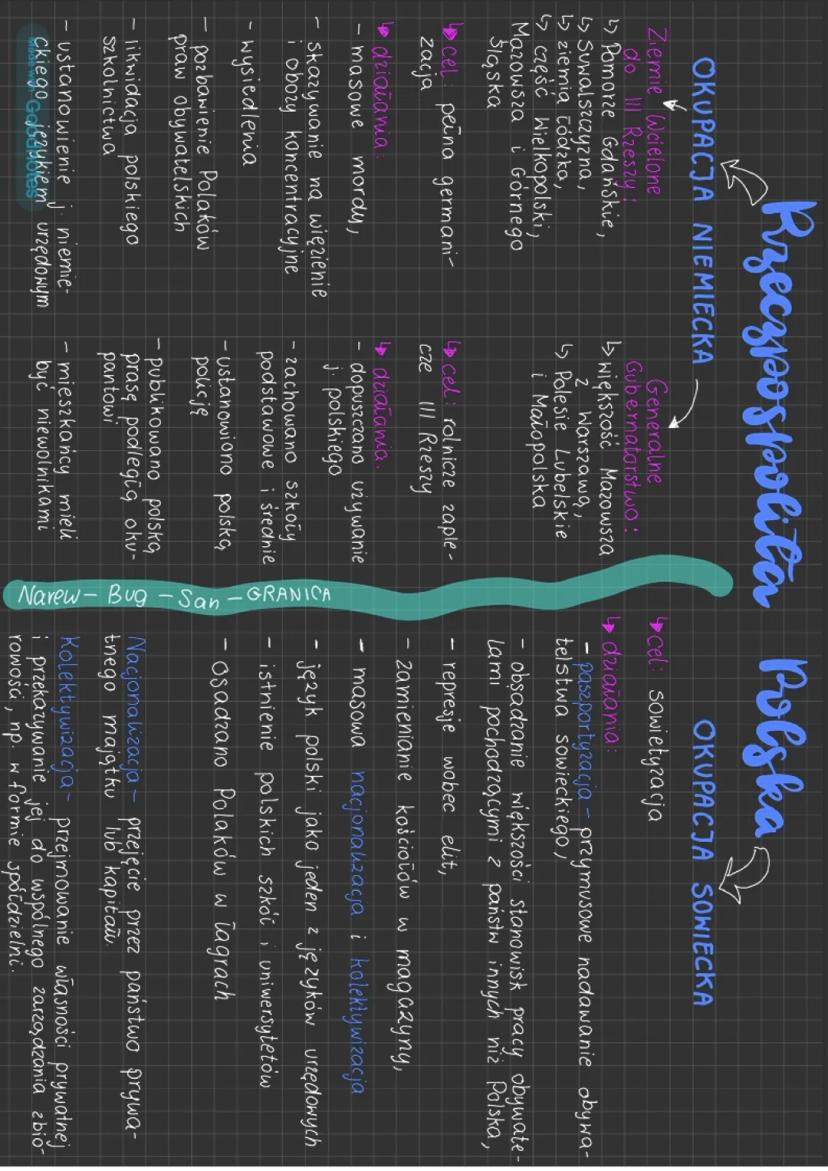 Rzeczpospolita Polska
OKUPACJA NIEMIECKA
Ziemie wcielone
do III Rzeszy:
↳ Pomorze Gdańskie,
↳ Suwalszczyzna,
↳ ziemia łódzka,
↳ część Wielkopolski,
Mazowsza i Górnego
Śląska
↳ cel: pełna germani-
zacja
↳ działania:
- masowe mordy,
- skazywanie na więzienie
i obozy koncentracyjne
- wysiedlenia
- pozbawienie Polaków
praw obywatelskich
- likwidacja polskiego
szkolnictwa
- ustanowienie j. niemie-
ckiego językiem urzędowym
Generalne
Gubernatorstwo:
↳ większość Mazowsza
z Warszawą,
↳ Polesie Lubelskie
i Małopolska
↳ cel: rolnicze zaple-
cze III Rzeszy
↳ działania:
- dopuszczano używanie
j. polskiego
- zachowano szkoły
podstawowe i średnie
- ustanowiono polską
policję
- publikowano polską
prasę podległą oku-
pantowi
- mieszkańcy mieli
być niewolnikami
Narew - Bug - San - GRANICA
OKUPACJA SOWIECKA
↳ cel: sowietyzacja
↳ działania:
- paszportyzacja - przymusowe nadawanie obywa-
telstwa sowieckiego,
- obsadzanie większości stanowisk pracy obywate-
lami pochodzącymi z państw innych niż Polska,
- represje wobec elit,
- zamienianie kościołów w magazyny,
- masowa nacjonalizacja i kolektywizacja
- język polski jako jeden z języków urzędowych
- istnienie polskich szkół i uniwersytetów
- osadzano Polaków w łagrach
Nacjonalizacja - przejęcie przez państwo prywa-
tnego majątku lub kapitału.
Kolektywizacja - przejmowanie własności prywatnej
i przekazywanie jej do wspólnego zarządzania zbio-
rowości, np. w formie spółdzielni.
Made with Goodnotes